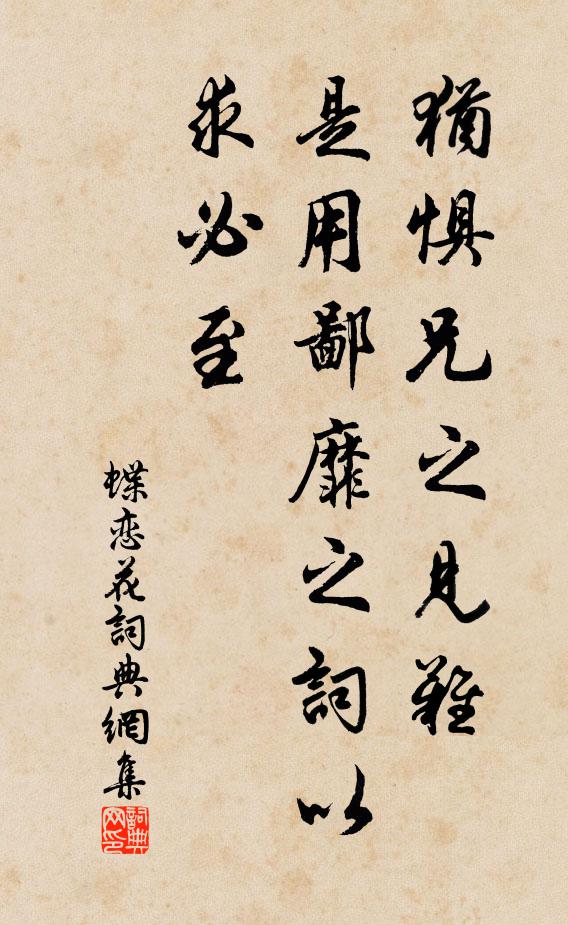 猶惧兄之見難
是用鄙靡之詞以
求必至
蝶恋花詞典網集
詞典网印